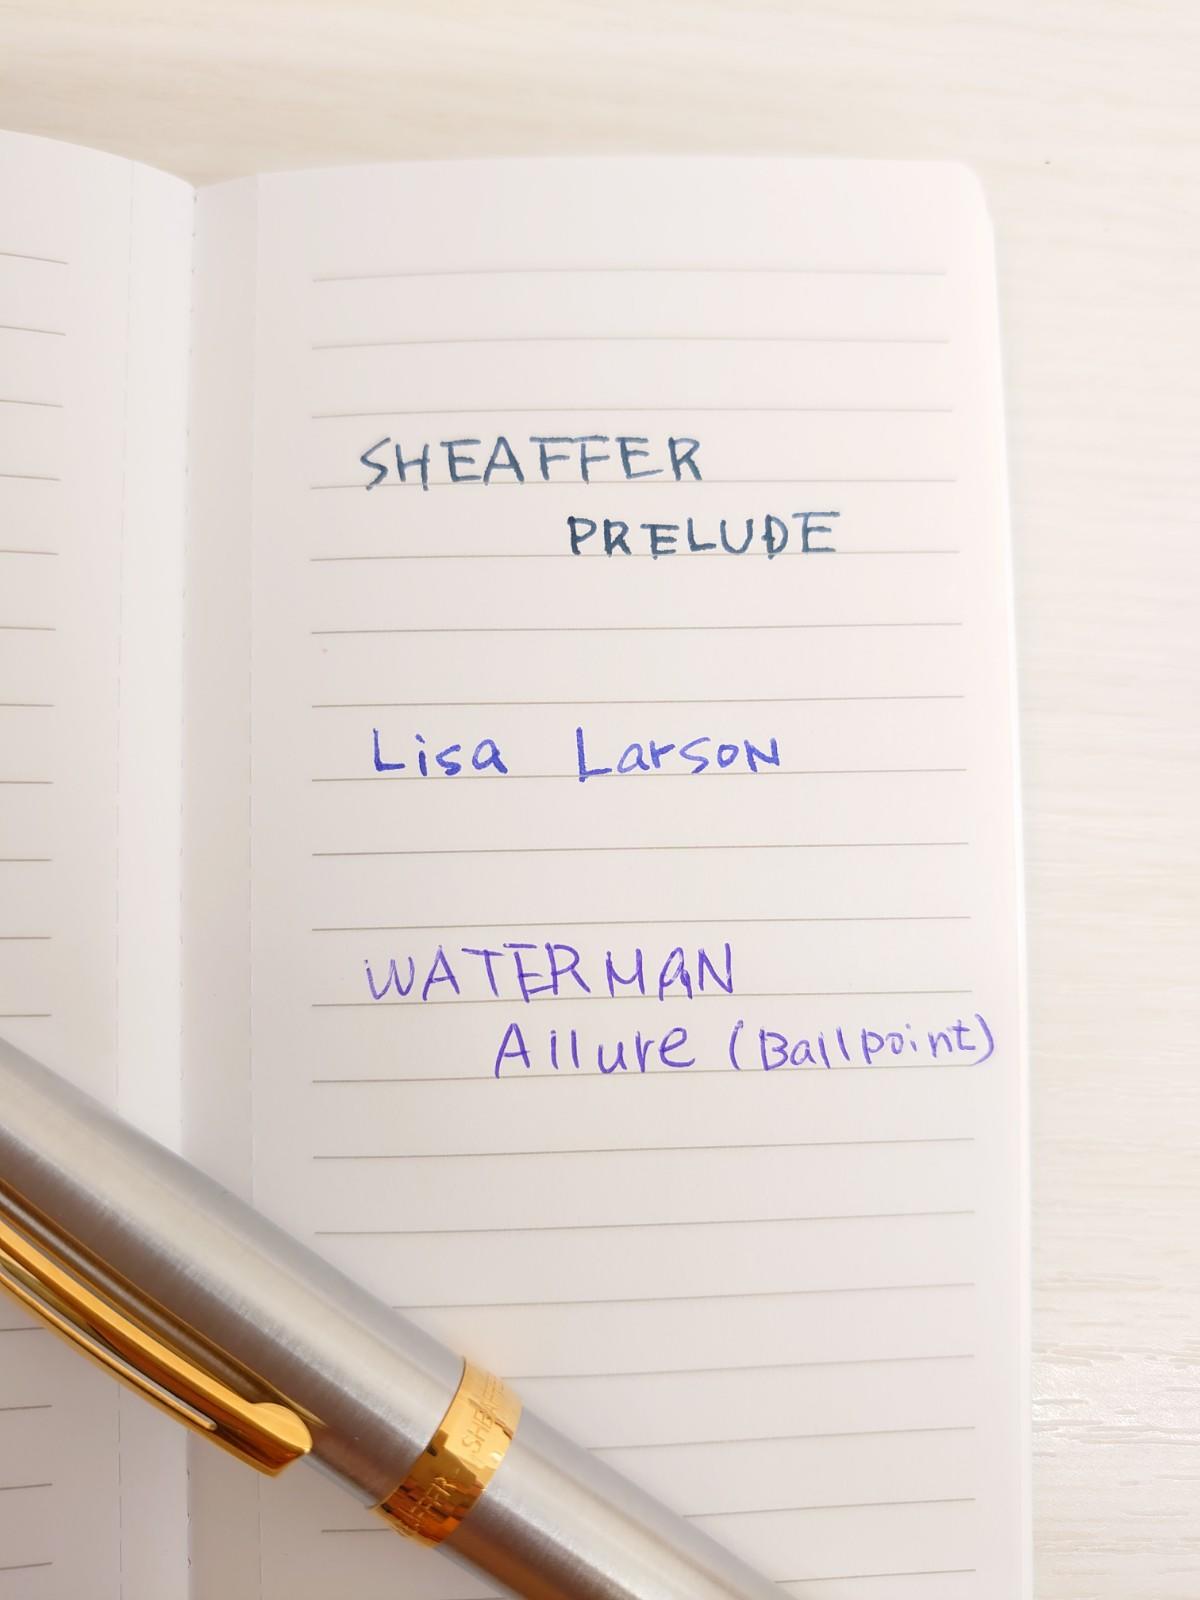 SHEAFFER
PRELUDE
Lisa Larson
WATERMAN
Allure (Ballpoint)
SHEAFFER